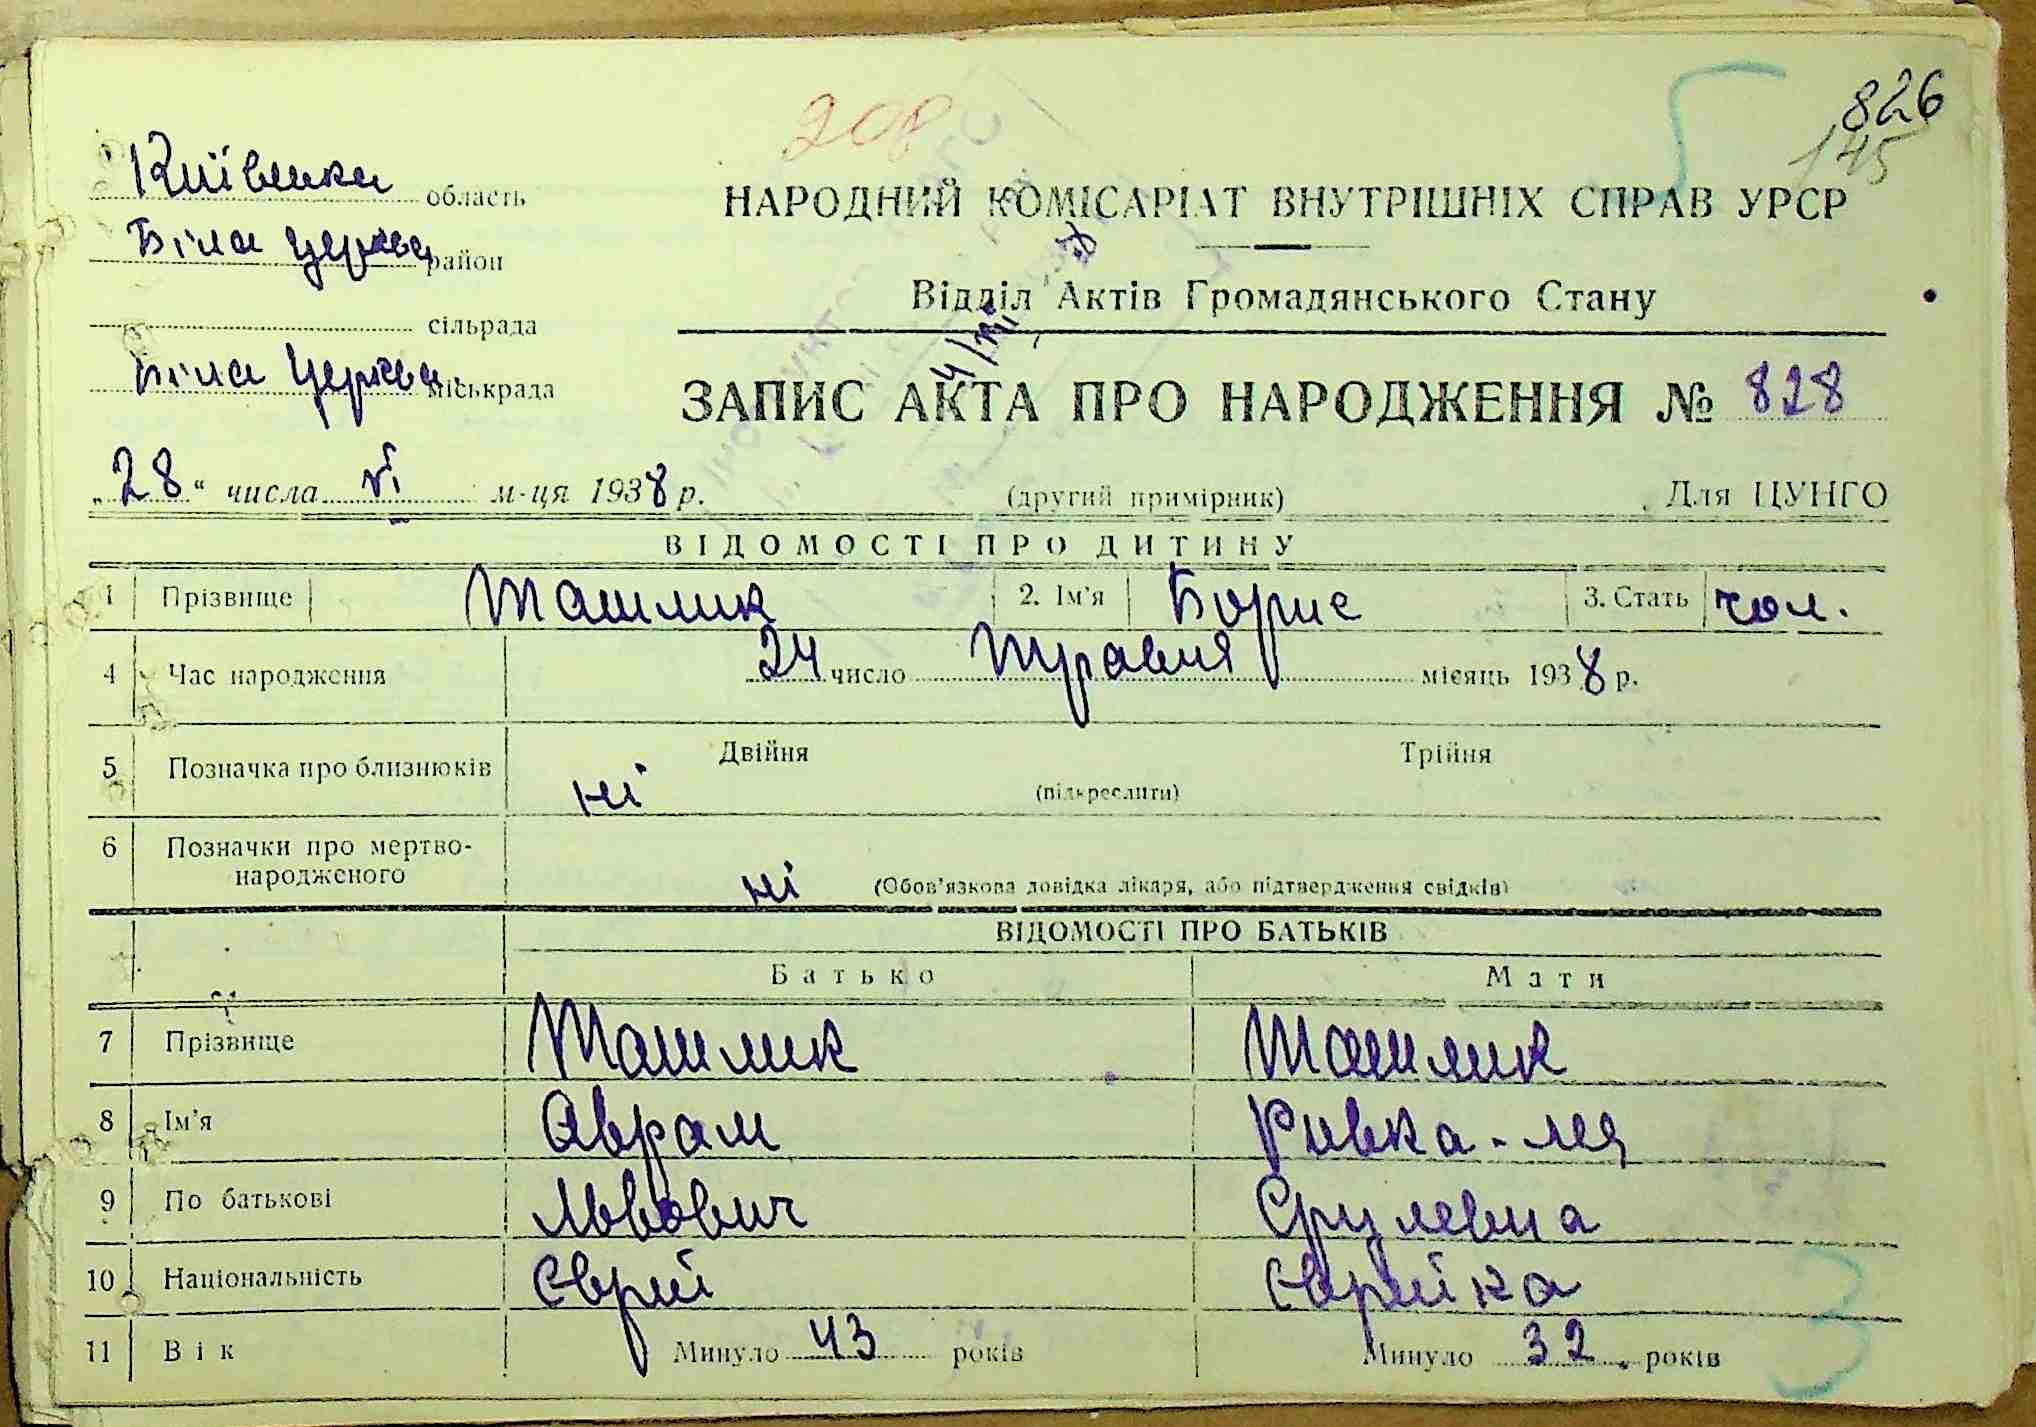 208
826
145
Київська область
Біла Церква район
сільрада
Біла Церква міськрада
НАРОДНИЙ КОМІСАРІАТ ВНУТРІШНІХ СПРАВ УРСР
Відділ Актів Громадянського Стану
ЗАПИС АКТА ПРО НАРОДЖЕННЯ № 828
„28“ числа VI м-ця 1938 р. (другий примірник) Для ЦУНГО
ВІДОМОСТІ ПРО ДИТИНУ
1 Прізвище Ташлик 2. Ім'я Борис 3. Стать чол.
4 Час народження 24 число Травня місяць 1938 р.
5 Позначка про близнюків ні Двійня Трійня
(підкреслити)
6 Позначки про мертво-
народженого ні (Обов'язкова довідка лікаря, або підтвердження свідків)
ВІДОМОСТІ ПРО БАТЬКІВ
Батько Мати
7 Прізвище Ташлик Ташлик
8 Ім'я Аврам Ривка-Лея
9 По батькові Львович Срулевна
10 Національність Єврей Єврейка
11 Вік Минуло 43 років Минуло 32 років